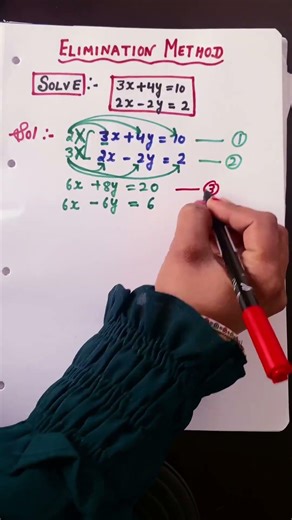 ELIMINATION METHOD
SOLVE :- 3x+4y=10
2x-2y=2
Sol :- 2X 3x+4y=10 — ①
3X 2x-2y=2 — ②
6x+8y=20 — ③
6x-6y=6